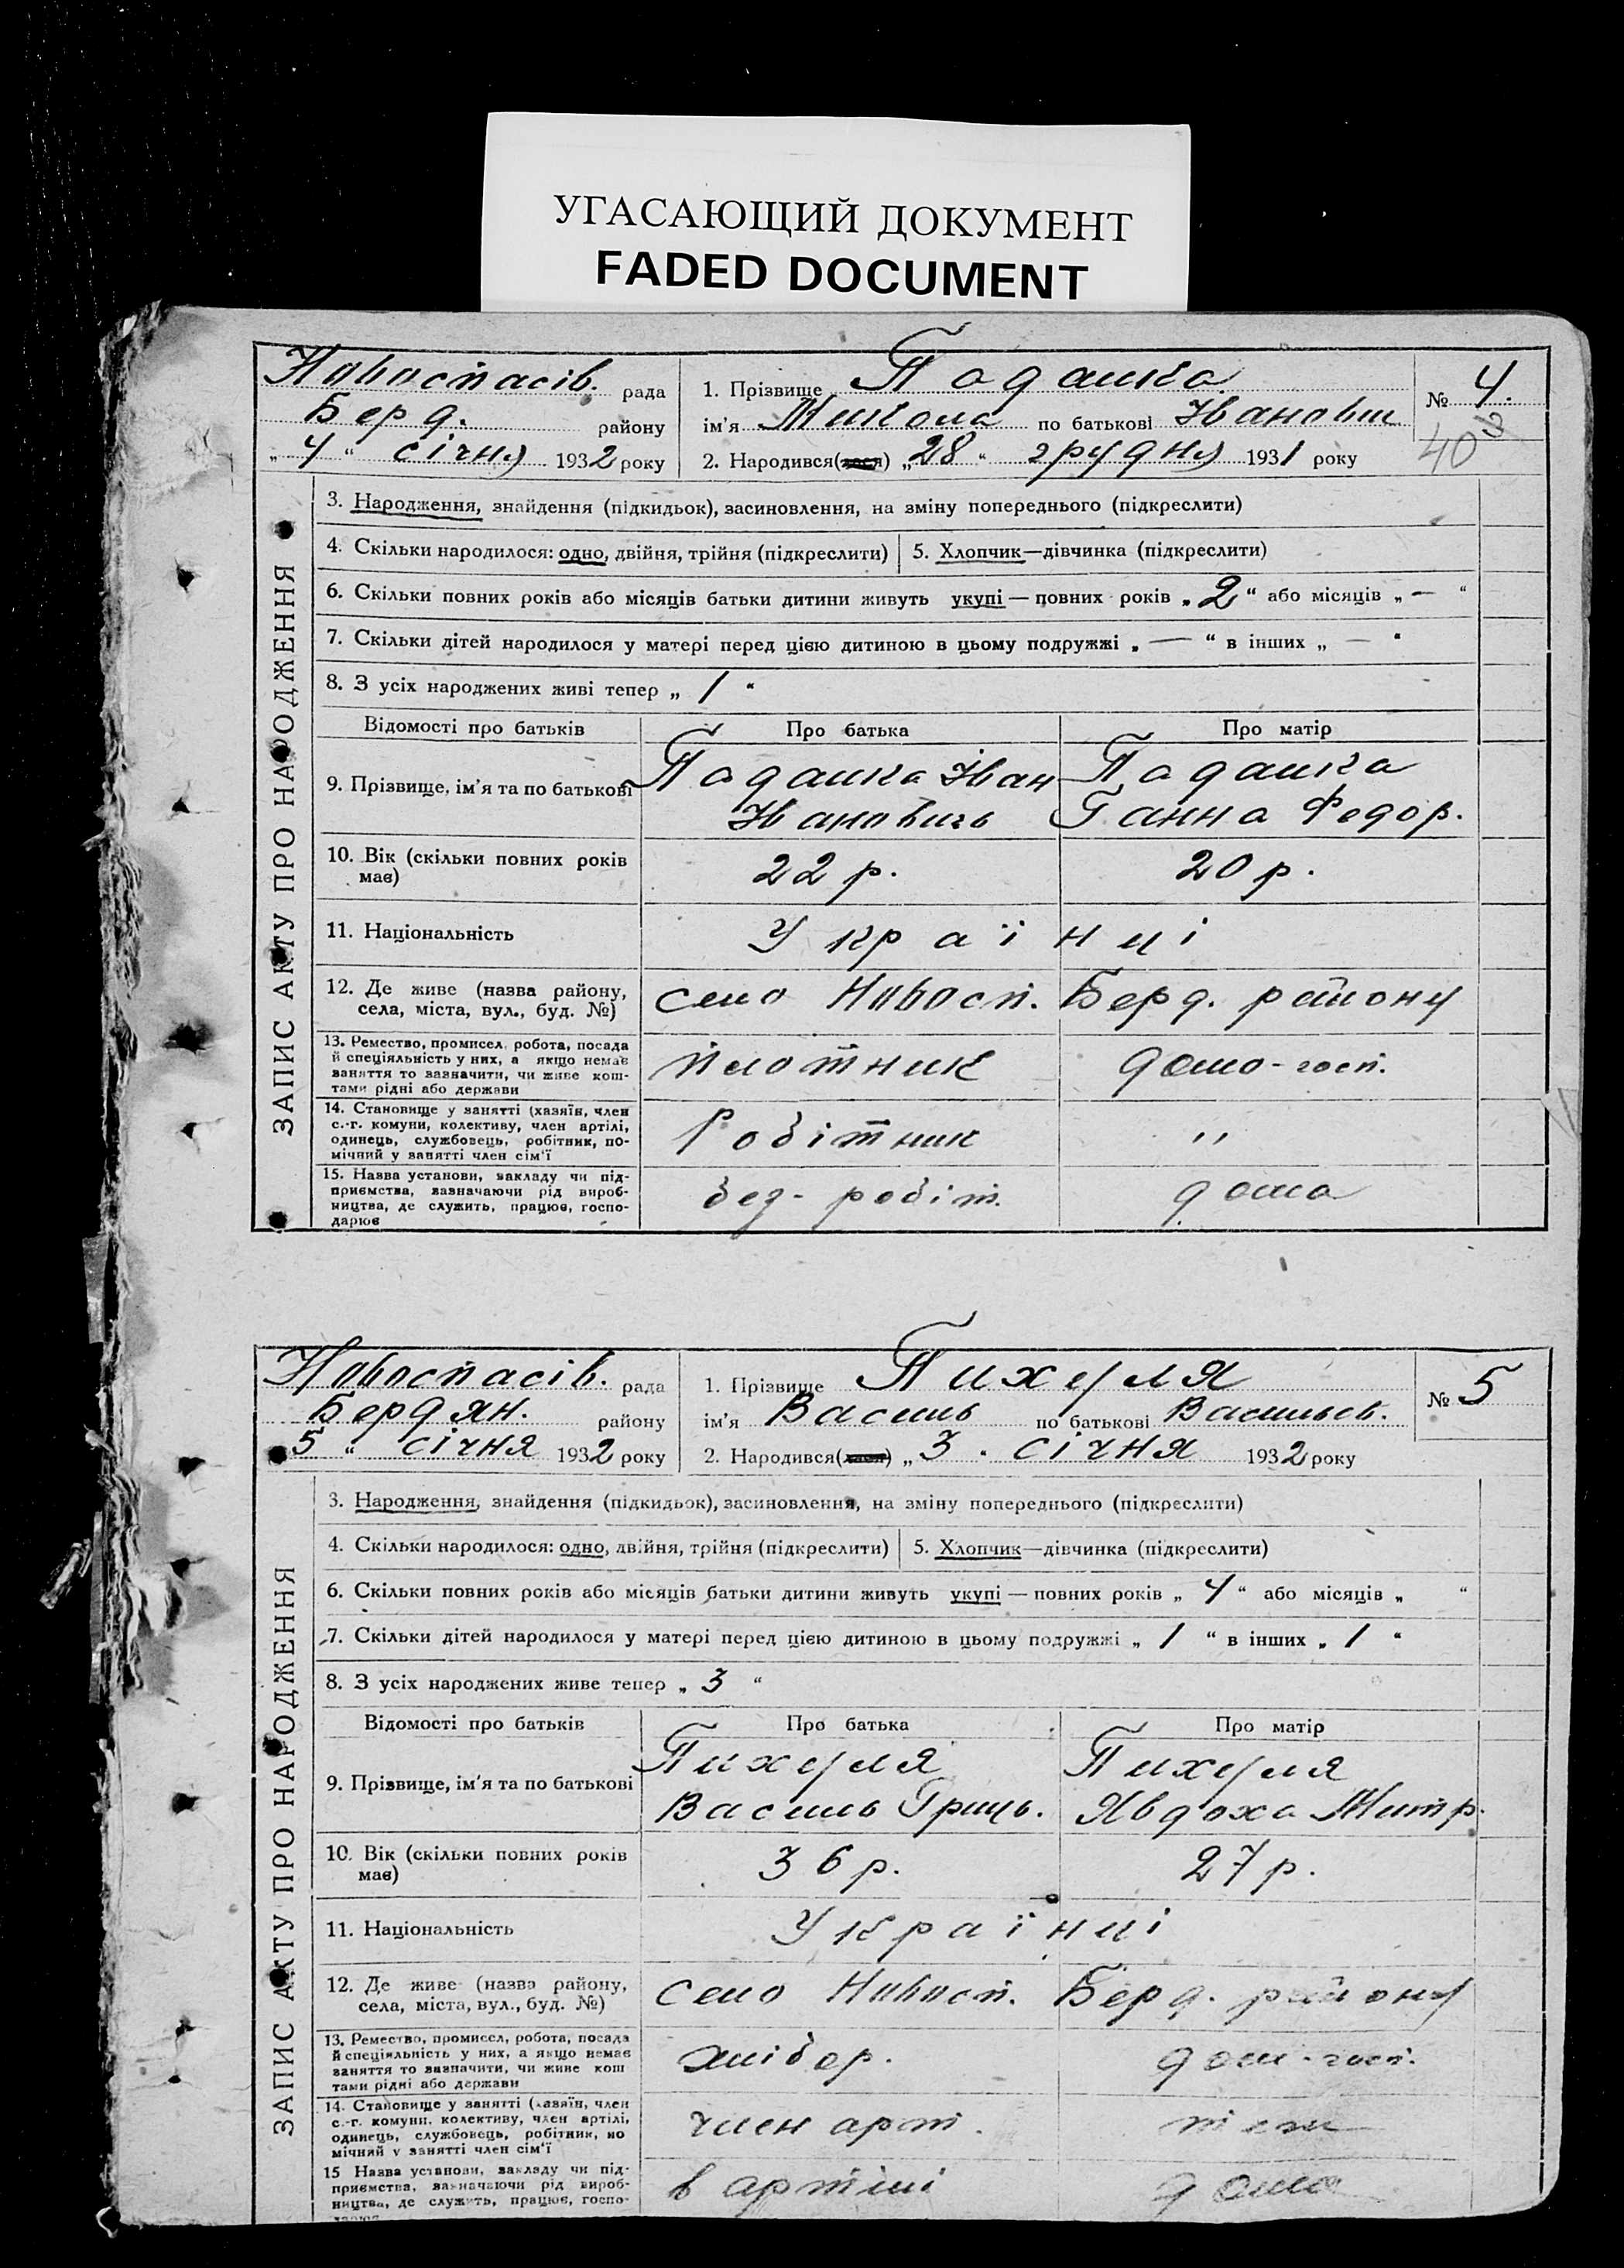 УГАСАЮЩИЙ ДОКУМЕНТ
FADED DOCUMENT
Новоспасів. рада
Берд. району
„ 4 “ січня 1932 року
1. Прізвище Падалка
ім'я Микола по батькові Іванович
2. Народився(лася) „ 28 “ грудня 1931 року
№ 4.
40
ЗАПИС АКТУ ПРО НАРОДЖЕННЯ
3. Народження, знайдення (підкидьок), засиновлення, на зміну попереднього (підкреслити)
4. Скільки народилося: одно, двійня, трійня (підкреслити) 5. Хлопчик—дівчинка (підкреслити)
6. Скільки повних років або місяців батьки дитини живуть укупі — повних років „ 2 “ або місяців „ — “
7. Скільки дітей народилося у матері перед цією дитиною в цьому подружжі „ — “ в інших „ — “
8. З усіх народжених живі тепер „ 1 “
Відомості про батьків Про батька Про матір
9. Прізвище, ім'я та по батькові
Падалка Іван
Іванович
Падалка
Ганна Федор.
10. Вік (скільки повних років
має)
22 р. 20 р.
11. Національність Українці
12. Де живе (назва району,
села, міста, вул., буд. №)
село Новосп. Берд. району
13. Ремество, промисел, робота, посада
й спеціяльність у них, а якщо немає
заняття то зазначити, чи живе кош-
тами рідні або держави
плотник домо-госп.
14. Становище у занятті (хазяїн, член
с.-г. комуни, колективу, член артілі,
одинець, службовець, робітник, по-
мічний у занятті член сім'ї
Робітник "
15. Назва установи, закладу чи під-
приємства, зазначаючи рід вироб-
ництва, де служить, працює, госпо-
дарює
без-робіт. дома
Новоспасів. рада
Бердян. району
5 “ січня 1932 року
1. Прізвище Пихуля
ім'я Василь по батькові Васильов.
2. Народився(лася) „ 3 . січня 1932 року
№ 5
ЗАПИС АКТУ ПРО НАРОДЖЕННЯ
3. Народження, знайдення (підкидьок), засиновлення, на зміну попереднього (підкреслити)
4. Скільки народилося: одно, двійня, трійня (підкреслити) 5. Хлопчик—дівчинка (підкреслити)
6. Скільки повних років або місяців батьки дитини живуть укупі — повних років „ 4 “ або місяців „ “
7. Скільки дітей народилося у матері перед цією дитиною в цьому подружжі „ 1 “ в інших „ 1 “
8. З усіх народжених живе тепер „ 3 “
Відомості про батьків Про батька Про матір
9. Прізвище, ім'я та по батькові
Пихуля
Василь Гриць.
Пихуля
Явдоха Митр.
10. Вік (скільки повних років
має)
36 р. 27 р.
11. Національність Українці
12. Де живе (назва району,
села, міста, вул., буд. №)
село Новосп. Берд. району
13. Ремество, промисел, робота, посада
й спеціяльність у них, а якщо немає
заняття то зазначити, чи живе кош
тами рідні або держави
хлібор. дом-госп.
14. Становище у занятті (хазяїн, член
с.-г. комуни, колективу, член артілі,
одинець, службовець, робітник, по
мічний у занятті член сім'ї
член арт. теж
15 Назва установи, закладу чи під-
приємства, зазначаючи рід вироб-
ництва, де служить, працює, госпо-
в артілі дома